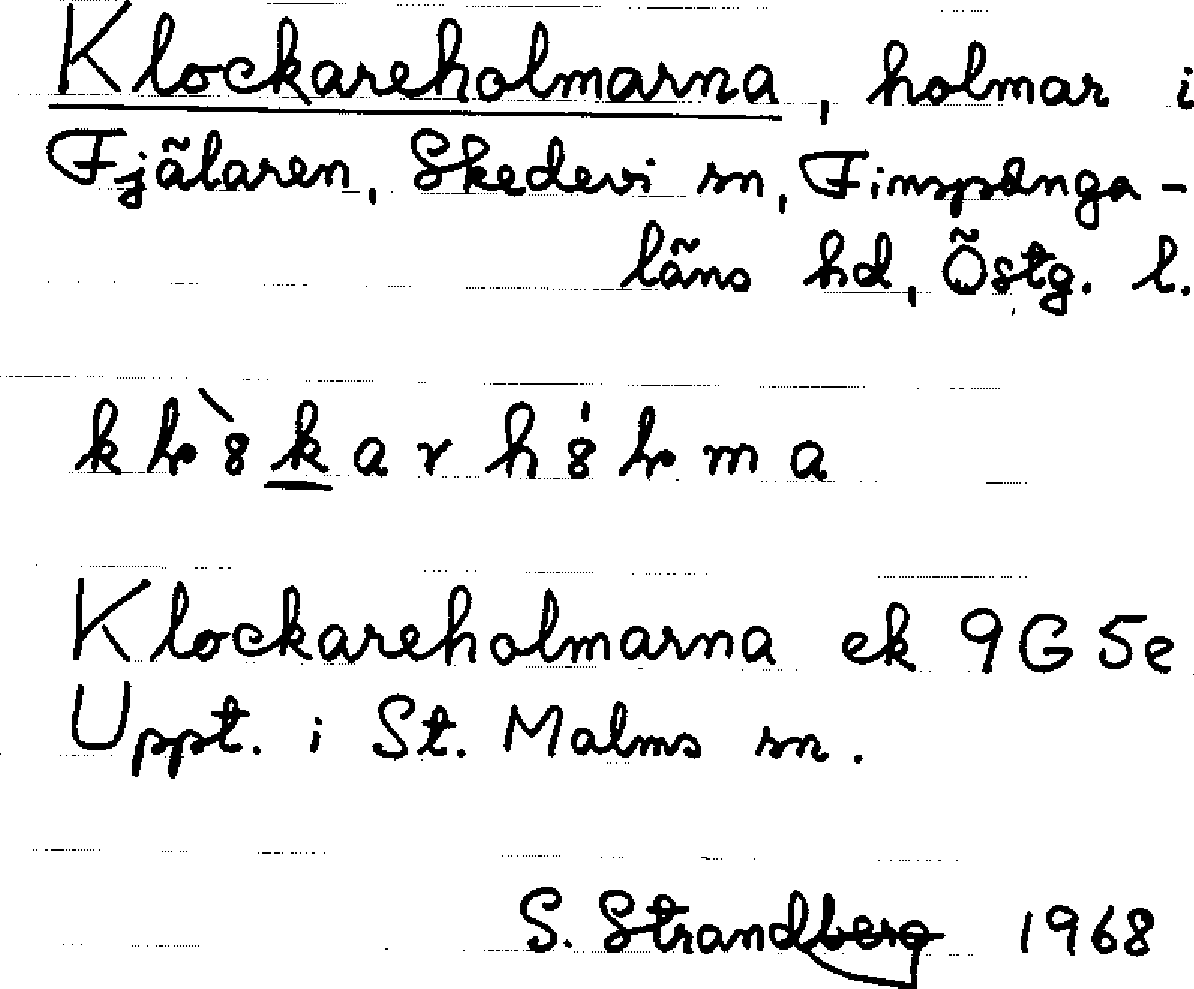 Klockareholmarna, holmar i
Fjälaren, Skedevi sn, Finspånga-
läns hd, Östg. l.
Klockareholmarna ek 9G5e
Uppt. i St. Malms sn.
S. Strandberg 1968